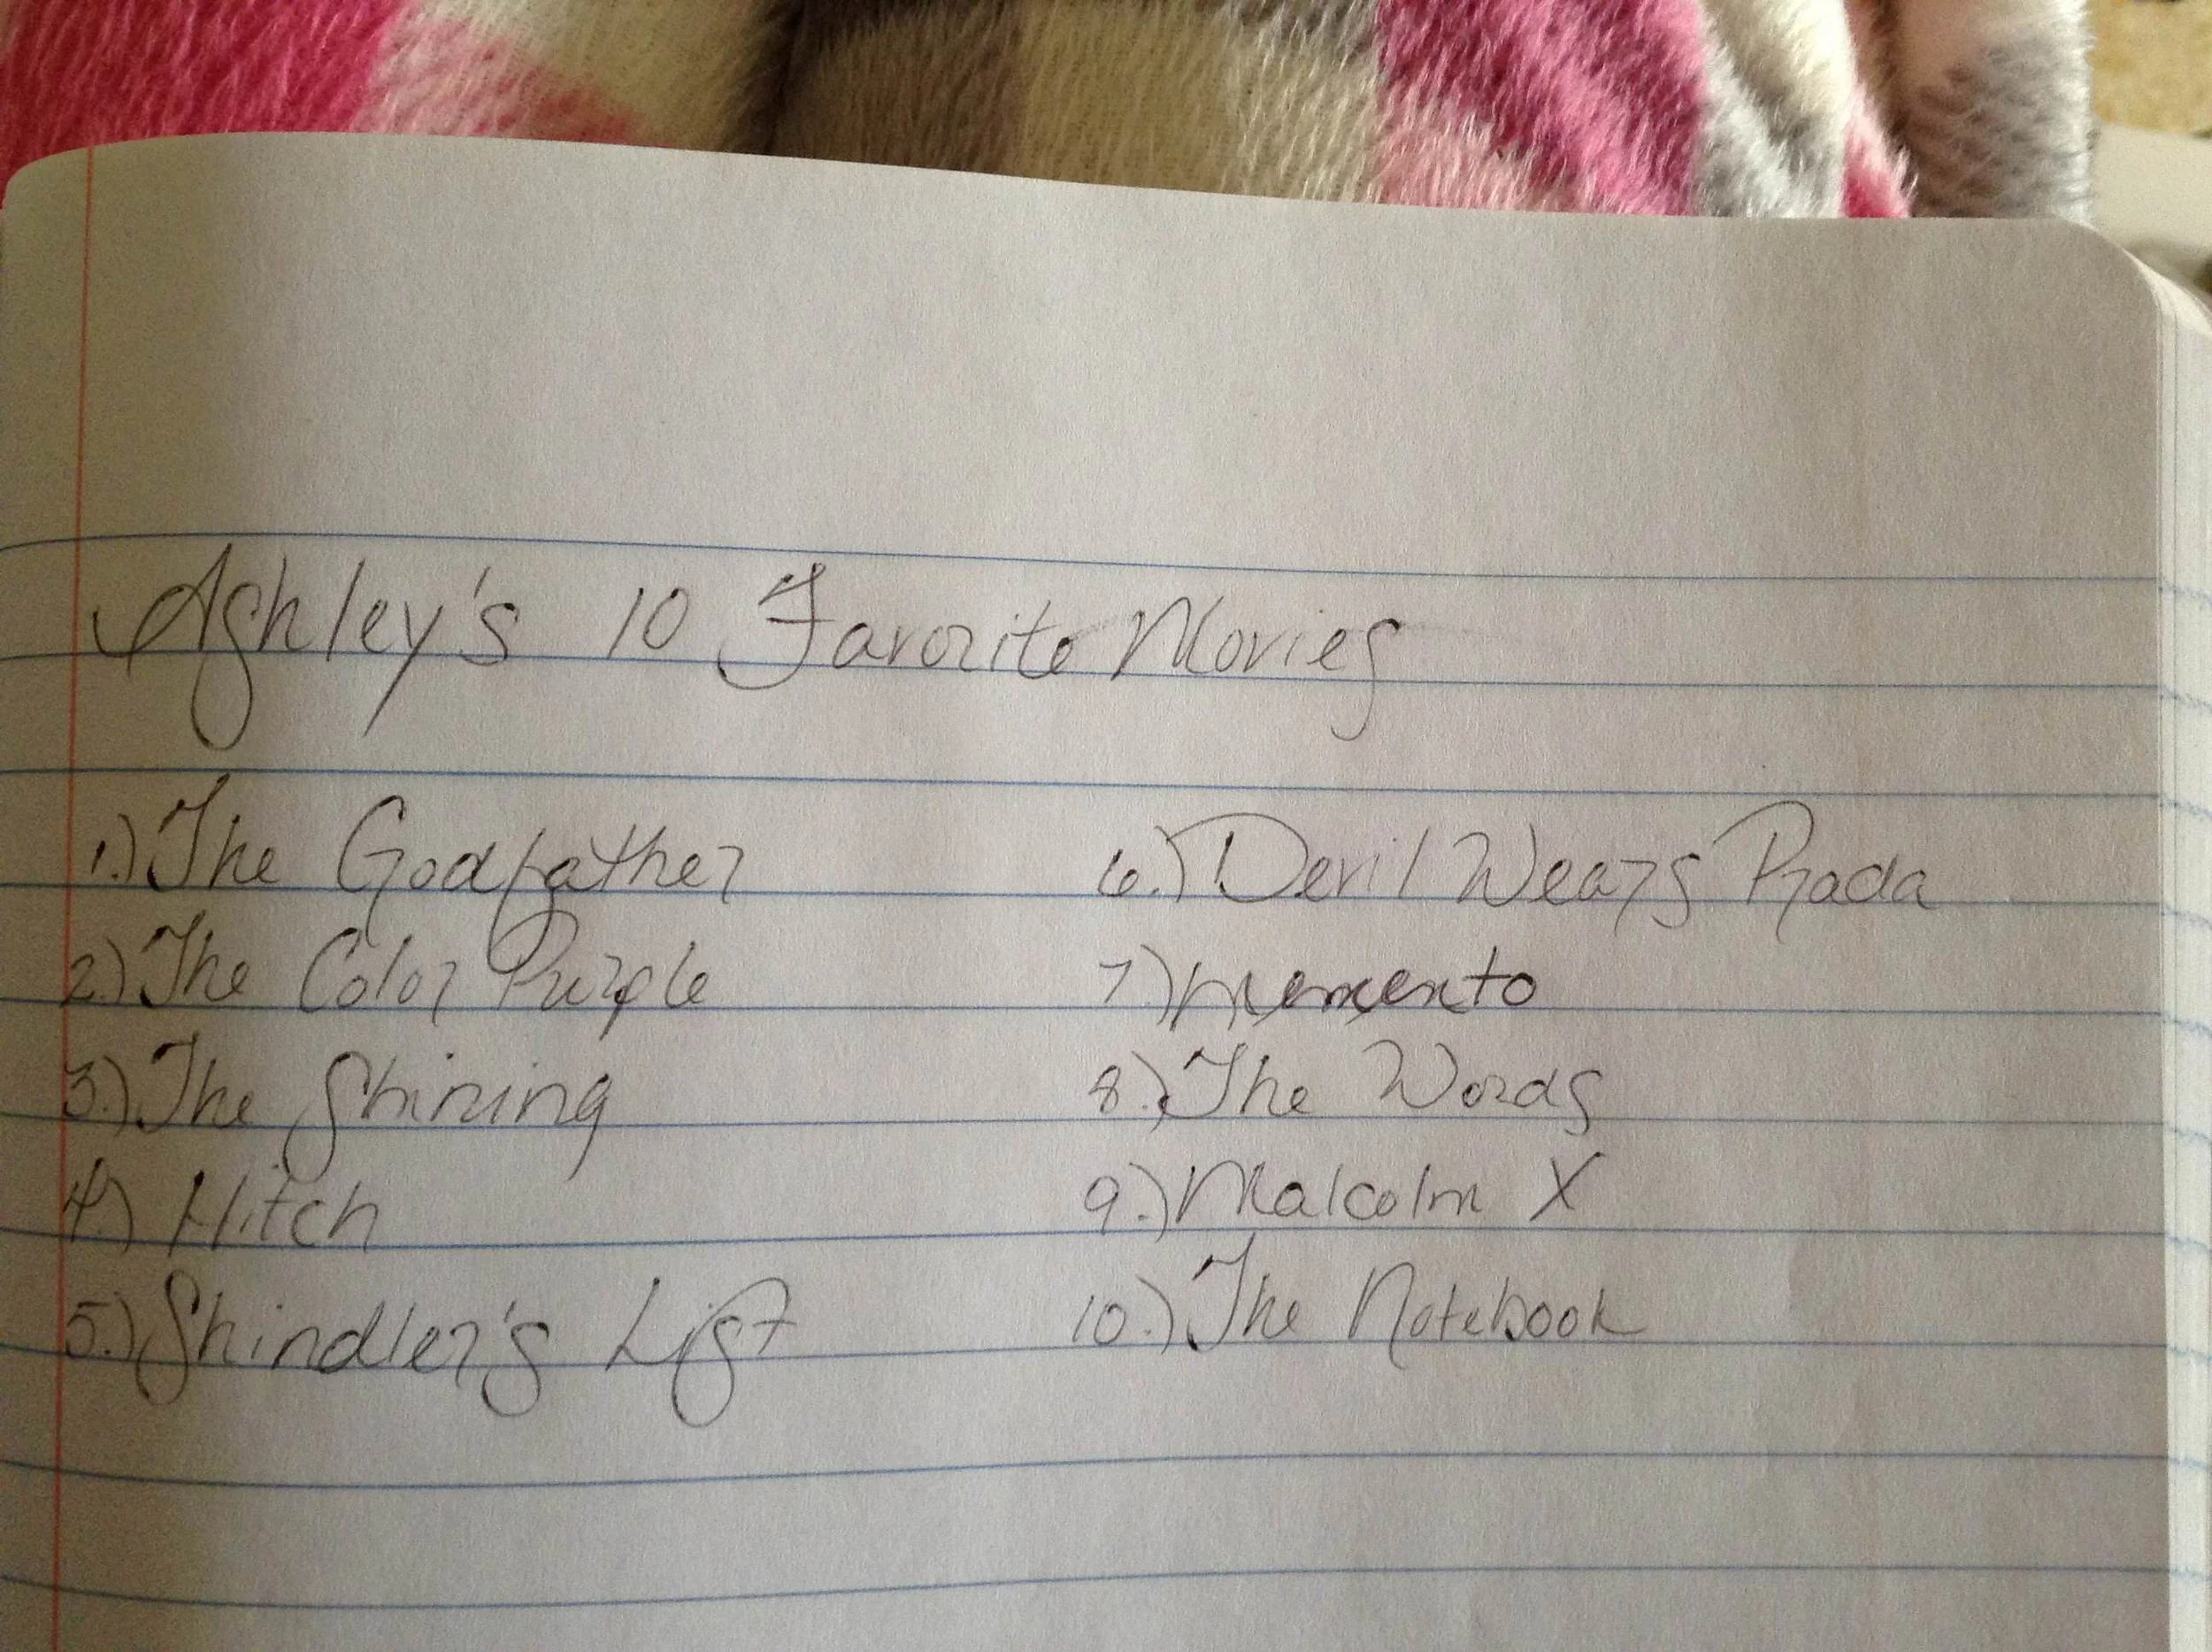 Ashley's 10 Favorite Movies
1.) The Godfather
2.) The Color Purple
3.) The Shining
4.) Hitch
5.) Shindler's List
6.) Devil Wears Prada
7.) Memento
8.) The Words
9.) Malcolm X
10.) The Notebook